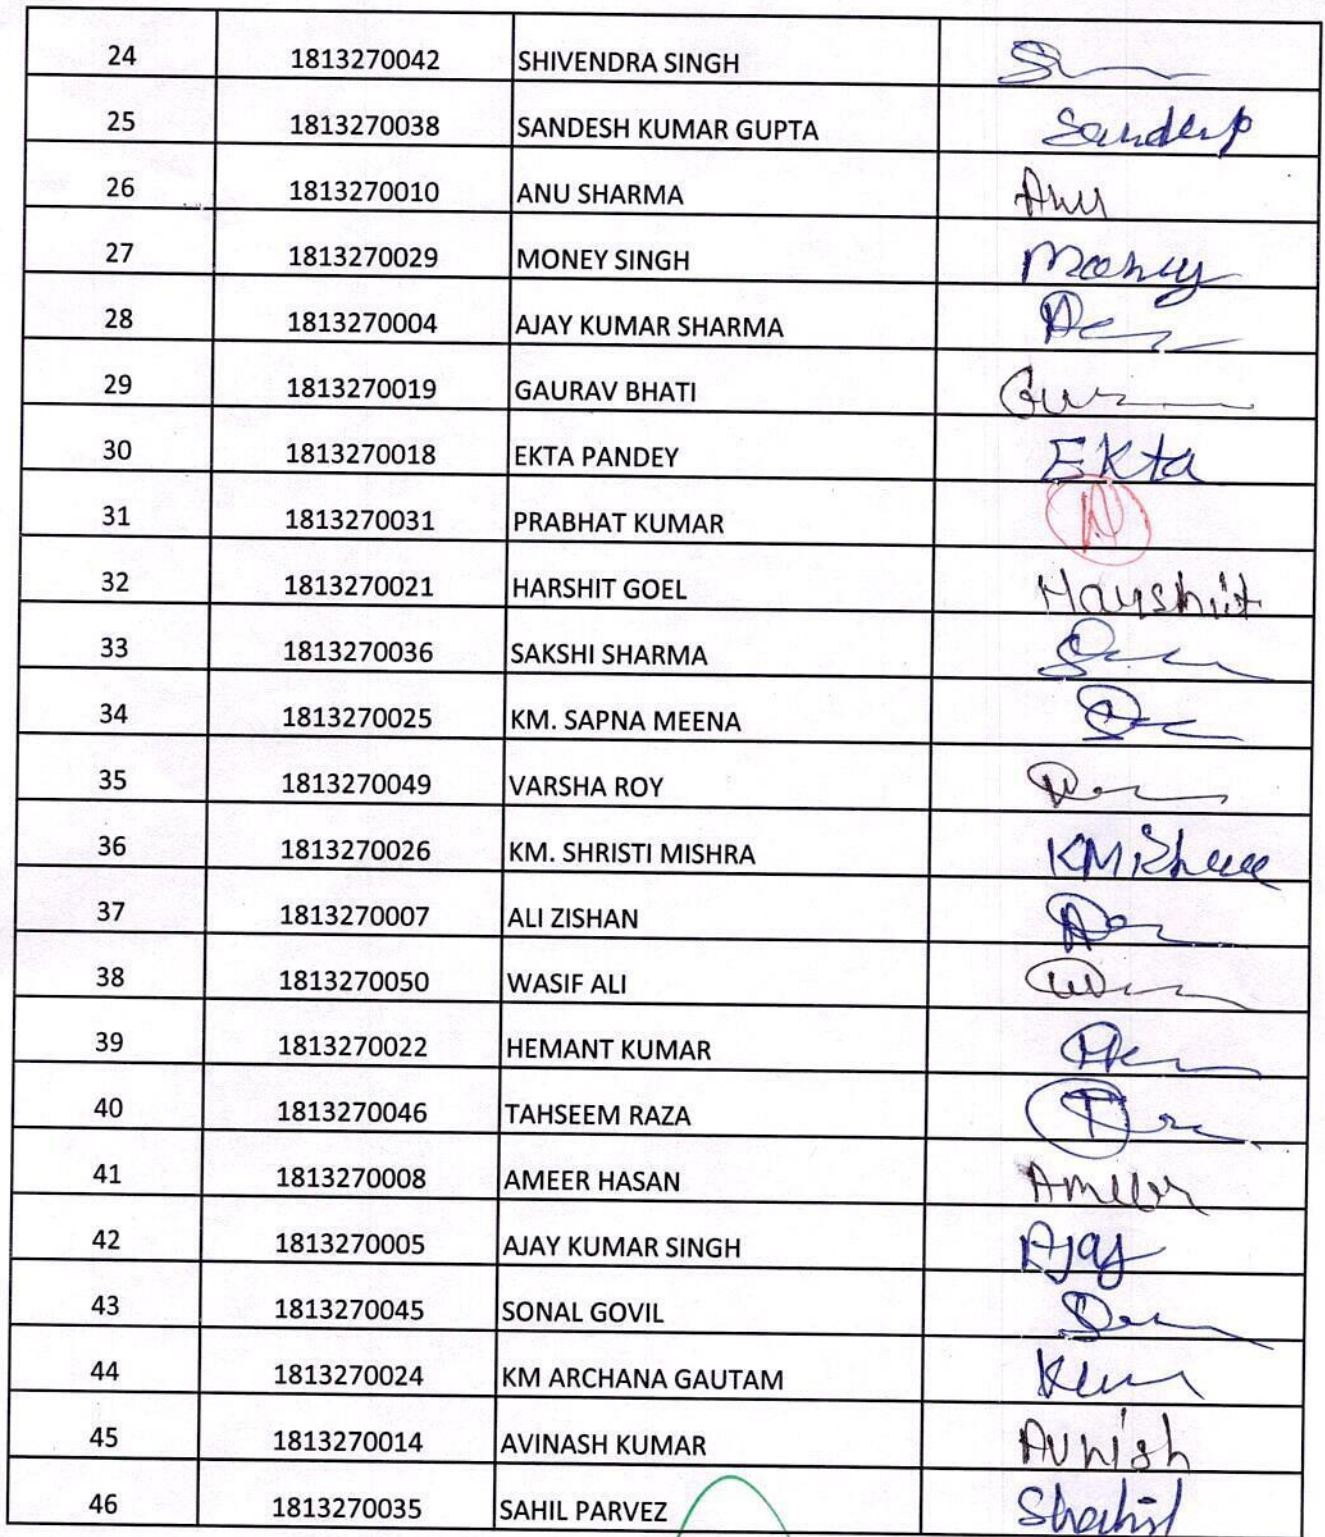 24 1813270042 SHIVENDRA SINGH
25 1813270038 SANDESH KUMAR GUPTA Sandeep
26 1813270010 ANU SHARMA Anu
27 1813270029 MONEY SINGH Money
28 1813270004 AJAY KUMAR SHARMA
29 1813270019 GAURAV BHATI
30 1813270018 EKTA PANDEY EKta
31 1813270031 PRABHAT KUMAR
32 1813270021 HARSHIT GOEL Harshit
33 1813270036 SAKSHI SHARMA
34 1813270025 KM. SAPNA MEENA
35 1813270049 VARSHA ROY
36 1813270026 KM. SHRISTI MISHRA
37 1813270007 ALI ZISHAN
38 1813270050 WASIF ALI
39 1813270022 HEMANT KUMAR
40 1813270046 TAHSEEM RAZA
41 1813270008 AMEER HASAN Ameer
42 1813270005 AJAY KUMAR SINGH Ajay
43 1813270045 SONAL GOVIL
44 1813270024 KM ARCHANA GAUTAM
45 1813270014 AVINASH KUMAR Avnish
46 1813270035 SAHIL PARVEZ